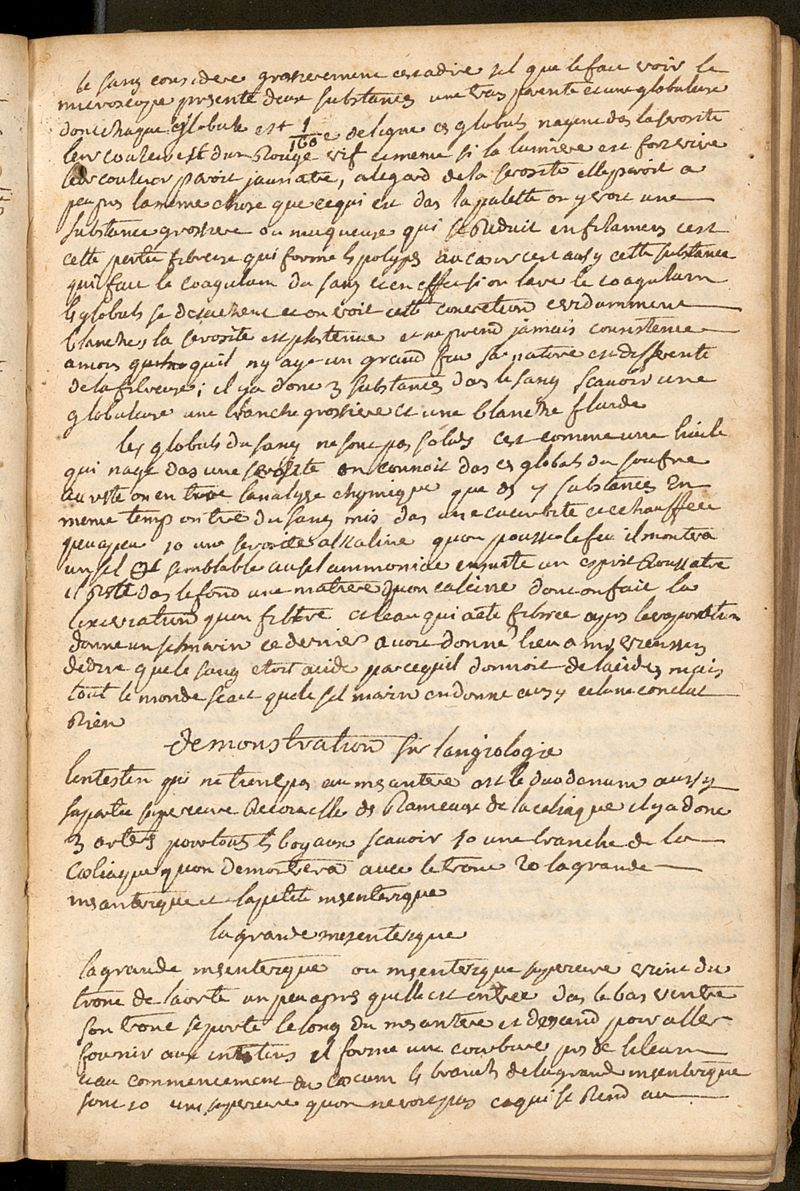 le sang considere grossierement cestadire tel que le fait voir le
microscope presente deux substances une transparente et une globuleuse
dont chaque globule est 1/160e de ligne ces globuls nagent das la serosite
leur couleur est dun Rouge vif et meme si la lumiere est fort vive
leur couleur paroit jaunatre, alegard de la serosite elle paroit a
peupres la meme chose que ce qui est das la palette on y voit une
substance grossiere ou muqueuse qui se Reduit en filamens cest
cette partie fibreuse qui forme ls polypes au coeur cest aussy cette substance
qui fait le coagulum du sang et en effet si on lave le coagulum
ls globuls se detachent et on voit cette concretion evidamment
blanche, la serosite est et ne prend jamais consistence
amoins quil ny aye un grand feu sa nature est differente
de la fibreuse; il ya donc 3 substances das le sang scavoir une
globuleuse une blanche grossiere et une blanche fluide
les globuls du sang ne sont pas solids cest comme une huile
qui nage das une serosite on connoit das ces globuls du soufre
au reste on en tire lanalyse chymique que ds 7 substances En
meme temp on tire du sang mis das une cucurbite et echauffee
peuapeu 10 une serosite alkaline quon pousse le feu il montera
un sel semblable au sel ammoniac ensuite un esprit Roussatre
il Reste das le fond une matiere quon calcine dont on fait la
lixiviation quon filtre et leau qui a ete filtree apres levaporation
donne un sel marin ce dernier avoit donné lieu a mr vieussens
dedire que le sang etoit acide parcequil donnoit de lacide, mais
tout le monde scait que le sel marin en donne aussy cela ne conclut
Rien
demonstration sur langiologie
lintestin qui ne tient pas au mesantere est le duodenum aussy
sa partie superieure Recoit elle ds Rameaux de la celiaque il ya donc
3 arters pour touts ls boyaux scavoir 10 une branche de la
Coeliaque quon demontrera avec le tronc 20 la grande
mesanterique et la petite mesenterique
la grande mesenterique
la grande mesenterique ou mesenterique superieure vient du
tronc de laorte un peu apres quelle est entree das le bas ventre
son tronc se porte le long du mesantere et descend pour aller
fournir aux intestins il forme une courbure pres de lileum
et au commencement du coecum ls branchs de la grande mesenterique
sont 10 une superieure quon ne voit pas et qui se Rend au